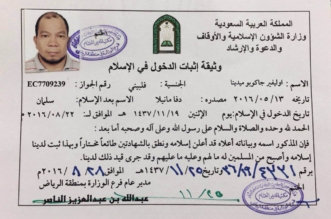 المملكة العربية السعودية
وزارة الشؤون الإسلامية والأوقاف
والدعوة والإرشاد
وثيقة إثبات الدخول في الإسلام
الاسم: اوليفير جاكوبو ميدينا الجنسية: فلبيني رقم الجواز: EC7709239
٢٠١٦/٠٥/١٣ مصدره: دفا مانيلا الاسم بعد الإسلام: سلمان
تاريخ الدخول في الإسلام: يوم الإثنين ١٤٣٧/١١/١٩هـ ٢٠١٦/٠٨/٢٢م
الحمد لله وحده والصلاة والسلام على رسول الله وعلى آله وصحبه أما بعد:
فإن المذكور اسمه وبياناته أعلاه قد أعلن إسلامه ونطق بالشهادتين طائعاً مختاراً وبهذا ثبت لدينا
إسلامه وأصبح من المسلمين له ما لهم وعليه ما عليهم وقد جرى قيد ذلك لدينا
مدير عام فرع الوزارة بمنطقة الرياض
عبدالله بن عبدالعزيز الناصر